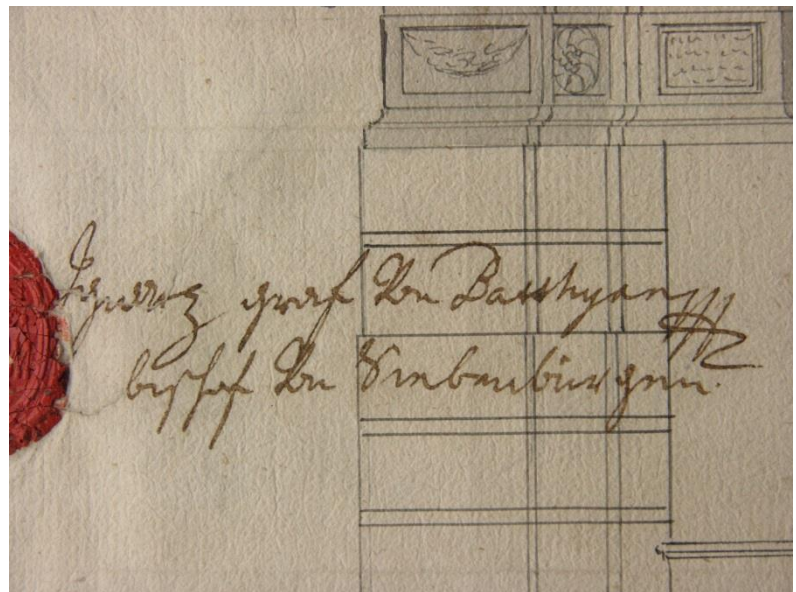 Ignatz graf Von Batthyan
bischof Von Siebenbürgen.